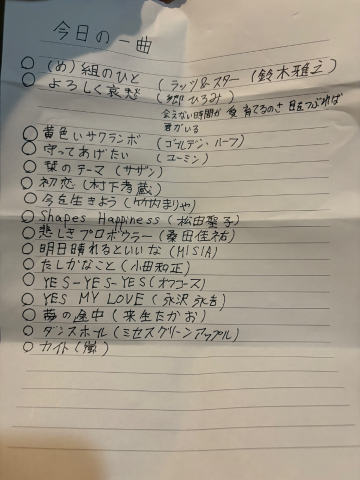 今日の一曲
○ (め)組のひと (ラッツ&スター (鈴木雅之)
○ よろしく哀愁 (郷ひろみ)
会えない時間が 愛育てるのさ 目をつぶれば
君がいる
○ 黄色いサクランボ (ゴールデン・ハーフ)
○ 守ってあげたい (ユーミン)
○ 栞のテーマ (サザン)
○ 初恋 (村下孝蔵)
○ 今を生きよう (竹内まりや)
○ Shapes Happiness (松田聖子)
○ 悲しきプロボウラー (桑田佳祐)
○ 明日晴れるといいな (MISIA)
○ たしかなこと (小田和正)
○ YES-YES-YES (オフコース)
○ YES MY LOVE (永沢永吉)
○ 夢の途中 (来生たかお)
○ ダンスホール (ミセスグリーンアップル)
○ カイト (嵐)